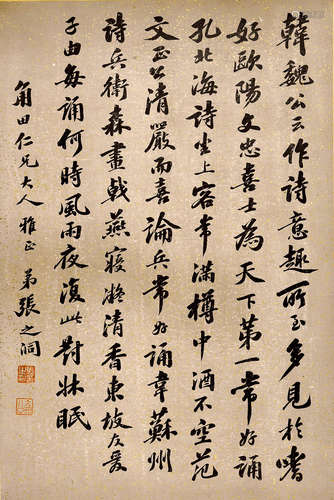 韓魏公云作詩意趣所至多見於嗜
好歐陽文忠喜士為天下第一常好誦
孔北海詩坐上客常滿樽中酒不空范
文正公清嚴而喜論兵常好誦韋蘇州
詩兵衛森畫戟燕寢凝清香東坡友愛
子由每誦何時風雨夜復此對牀眠
角田仁兄大人雅正 弟張之洞